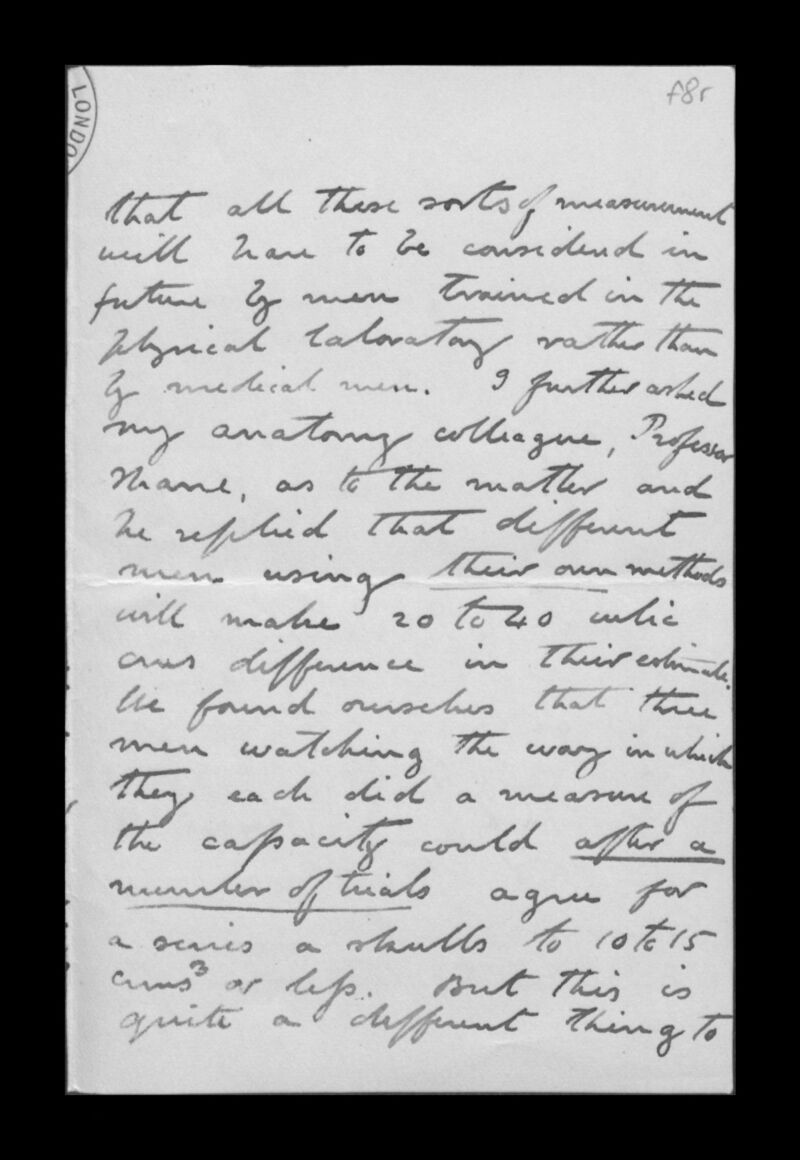 f8r
LONDO
that all these sorts of measurement
will have to be considered in
future by men trained in the
physical laboratory rather than
by medical men. I further asked
my anatomy colleague, Professor
Thane, as to the matter and
he replied that different
men using their own methods
will make 20 to 40 cubic
cms difference in their estimate.
We found ourselves that three
men watching the way in which
they each did a measure of
the capacity could after a
number of trials agree for
a series a skulls to 10 to 15
cms³ or less. But this is
quite a different thing to